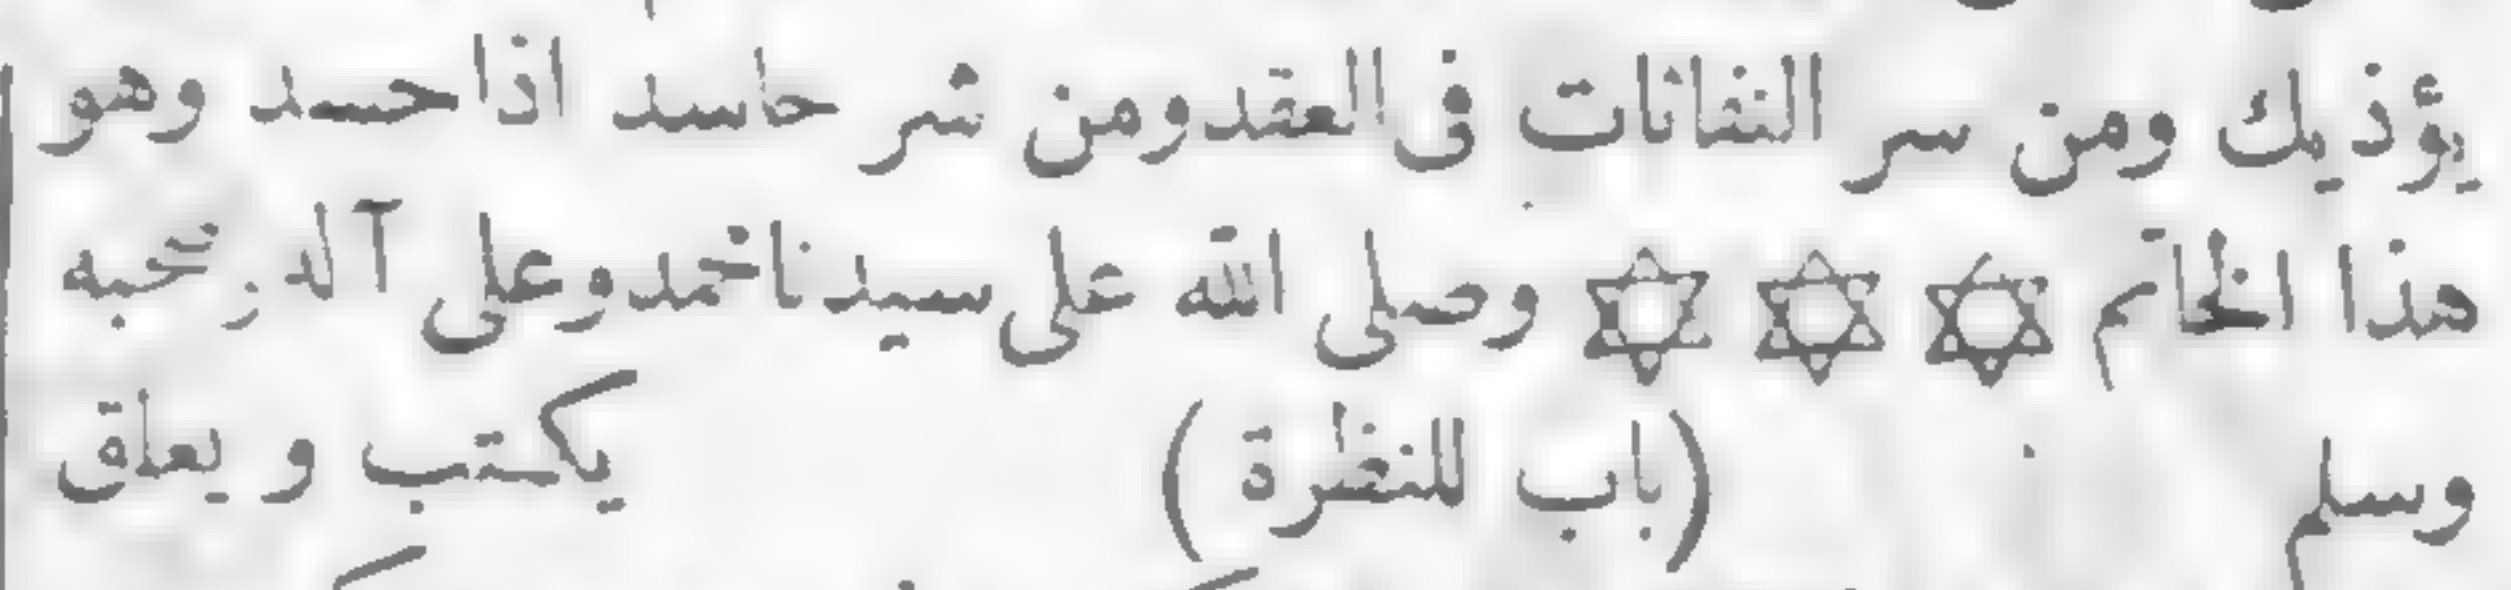 يؤذيك ومن سر النفاثات فى العقد ومن شر حاسد اذا حسد وهو
هذا الخاتم ✡ ✡ ✡ وصلى الله على سيدنا محمد وعلى آله وصحبه
وسلم (باب للنظرة) يكتب ويعلق